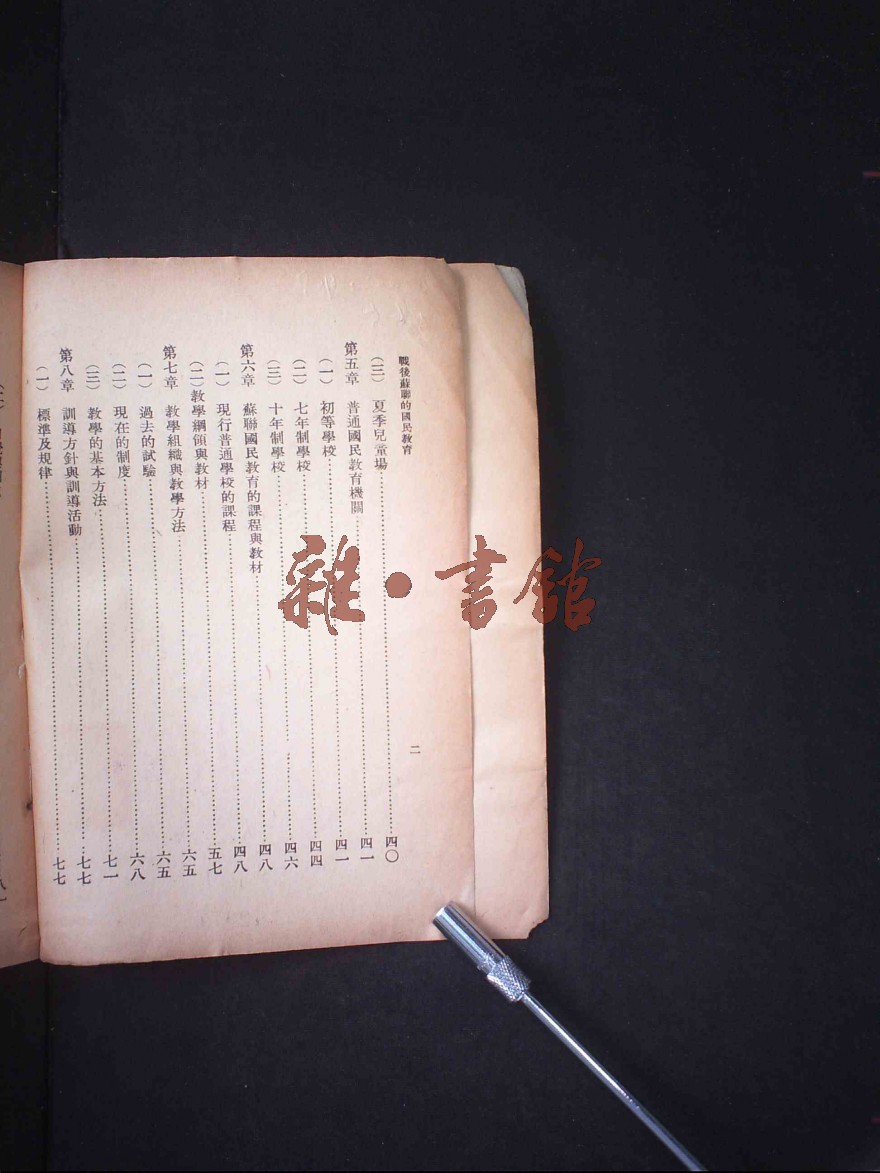 戰後蘇聯的國民教育
二
（三） 夏季兒童場……四〇
第五章 普通國民教育機關……四一
（一） 初等學校……四一
（二） 七年制學校……四四
（三） 十年制學校……四六
第六章 蘇聯國民教育的課程與教材……四八
（一） 現行普通學校的課程……四八
（二）教學綱領與教材……五七
第七章 教學組織與教學方法……六五
（一） 過去的試驗……六五
（二） 現在的制度……六八
（三） 教學的基本方法……七一
第八章 訓導方針與訓導活動……七七
（一） 標準及規律……七七
雜·書館